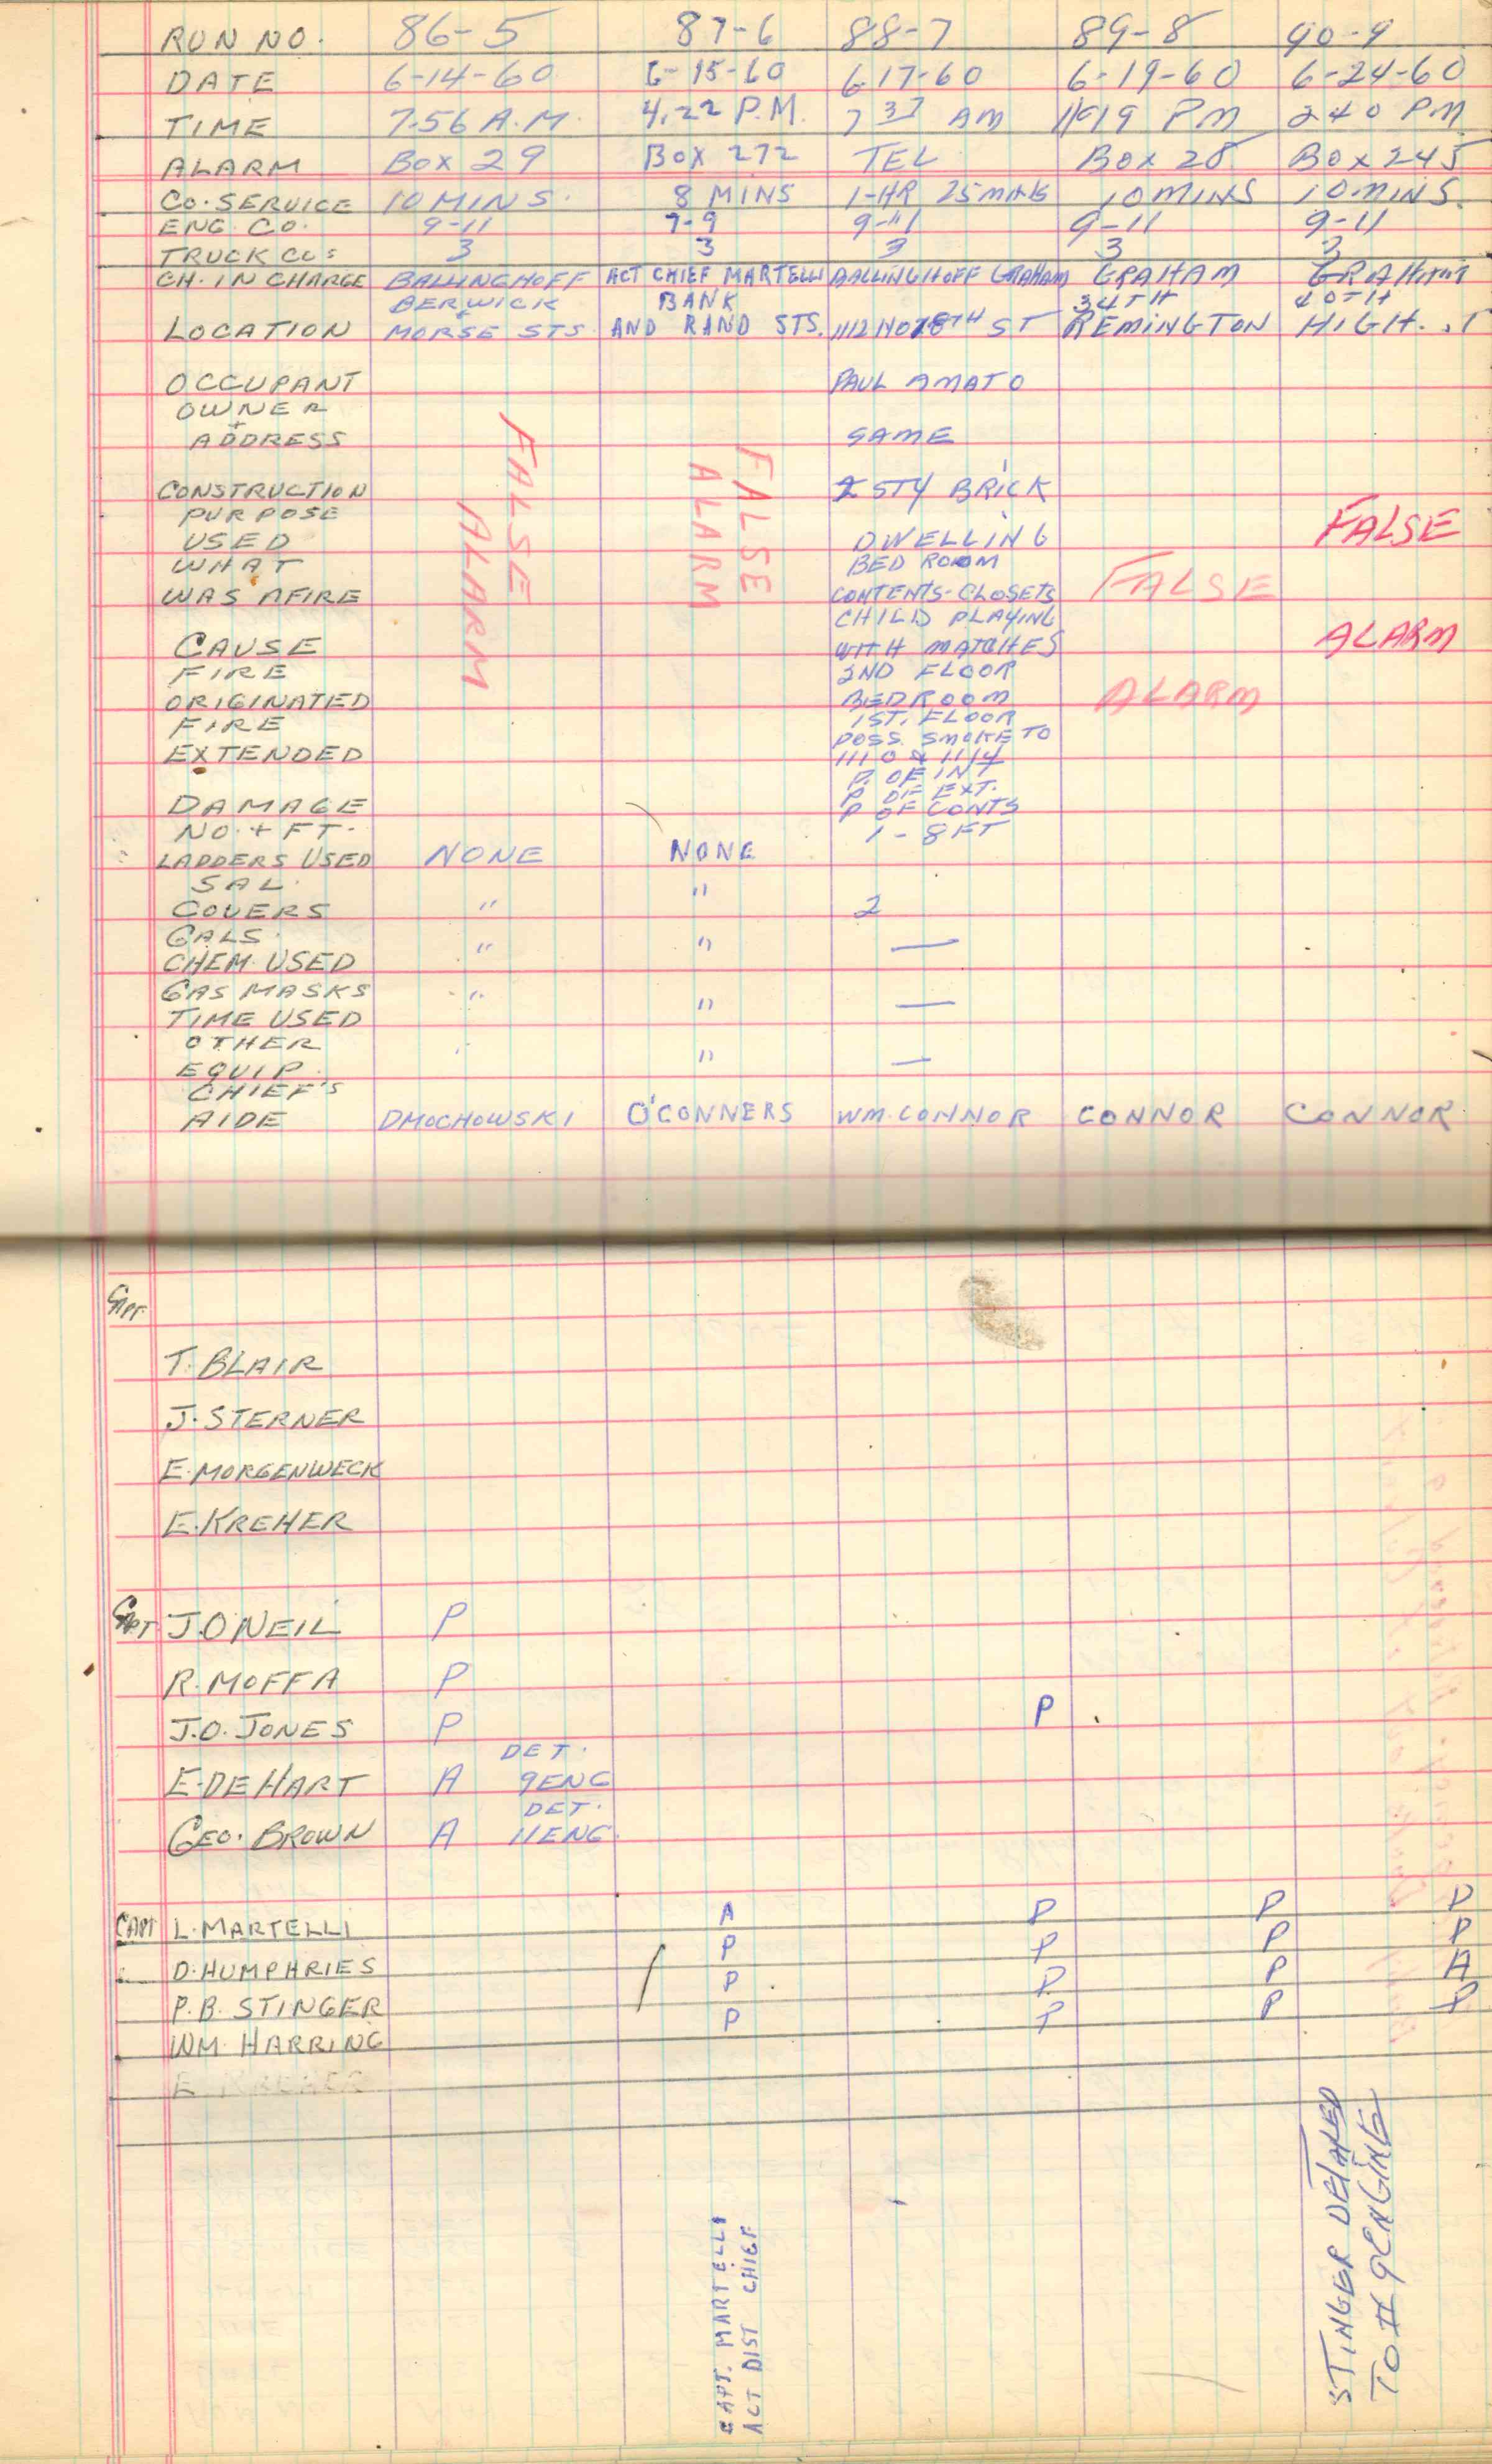 RUN NO. 86-5 87-6 88-7 89-8 90-9
DATE 6-14-60 6-15-60 6-17-60 6-19-60 6-24-60
TIME 7-56 A.M. 4.22 P.M. 7 37 AM 11-19 PM 240 PM
ALARM BOX 29 BOX 272 TEL BOX 28 BOX 245
CO. SERVICE 10 MINS. 8 MINS 1-HR 25 MINS 10 MINS 10 MINS.
ENG. CO. 9-11 7-9 9-11 9-11 9-11
TRUCK CO: 3 3 3 3 3
CH. IN CHARGE BALLINGHOFF ACT CHIEF MARTELLI BALLINGHOFF GRAHAM GRAHAM GRAHAM
BERWICK BANK 34TH 40TH
LOCATION + MORSE STS AND RAND STS. 1112 NO 28TH ST REMINGTON HIGH.
OCCUPANT PAUL AMATO
OWNER
+
ADDRESS SAME
CONSTRUCTION 2 STY BRICK
PURPOSE
USED DWELLING
WHAT BED ROOM
WAS AFIRE CONTENTS-CLOSETS
CHILD PLAYING
CAUSE WITH MATCHES
FIRE 2ND FLOOR
ORIGINATED BEDROOM
FIRE 1ST. FLOOR
POSS. SMOKE TO
EXTENDED 1110 & 1114
P. OF INT
P OF EXT.
DAMAGE P OF CONTS
NO. + FT. 1-8 FT
LADDERS USED NONE NONE
SAL. "
COVERS " 2
GALS. " " —
CHEM. USED
GAS MASKS " " —
TIME USED
OTHER
EQUIP. " —
CHIEF'S
AIDE DMOCHOWSKI O'CONNERS WM. CONNOR CONNOR CONNOR
FALSE
ALARM
FALSE
ALARM
FALSE
ALARM
FALSE
ALARM
CAPT.
T. BLAIR
J. STERNER
E. MORGENWECK
E. KREHER
CAPT J.O NEIL P
R. MOFFA P
J.O. JONES P P
DET.
E. DE HART A 9ENG
DET.
GEO. BROWN A 11ENG.
CAPT L. MARTELLI A P P P
D. HUMPHRIES P P P P
P.B. STINGER P P P A
WM. HARRING P P P P
E KREHER
CAPT. MARTELLI
ACT DIST CHIEF
STINGER DETAILED
TO # 9 ENGINE